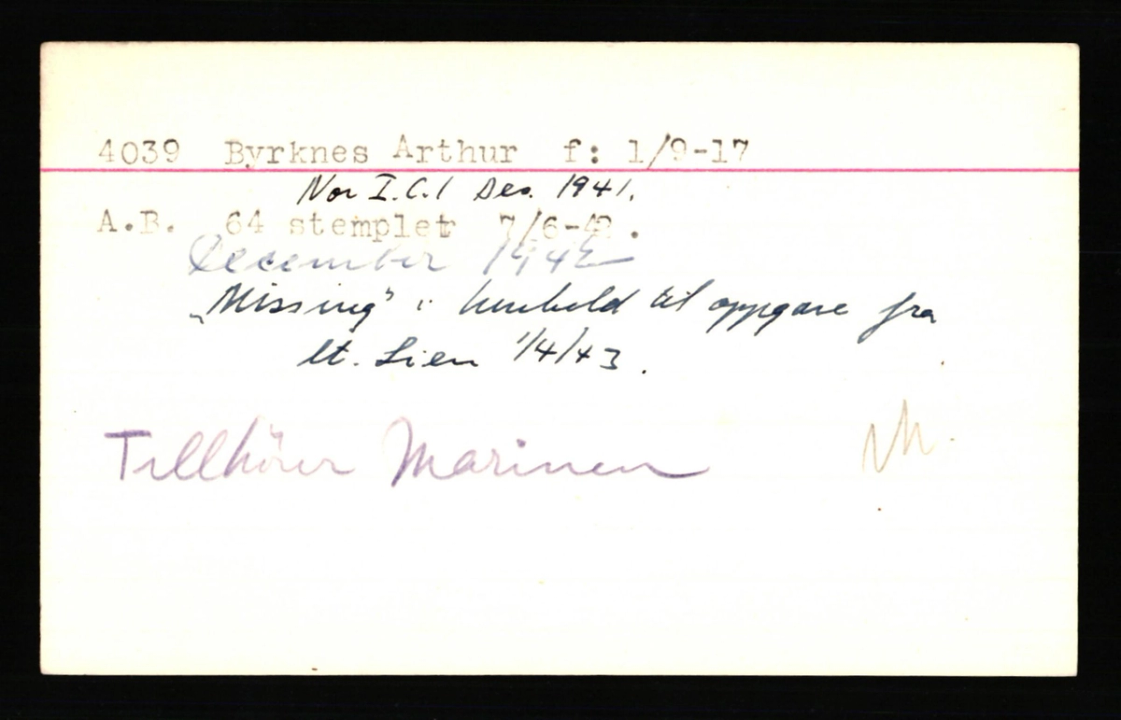 4039 Byrknes Arthur f: 1/9-17
Nor I.C.1 Des. 1941.
A.B. 64 stemplet 7/6-42.
December 1942
„Missing" i henhold til oppgave fra
lt. Lien 1/4/43.
Tillhörer Marinen